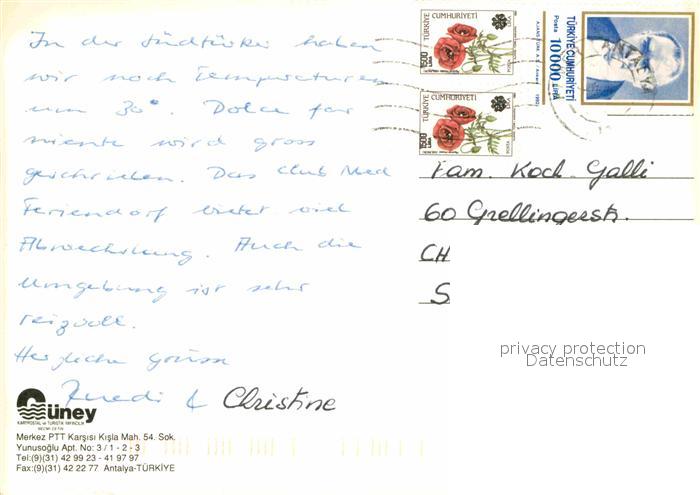 In der Südtürkei haben
wir noch Temperaturen
um 30°. Dolce far
niente wird gross
geschrieben. Das Club Med
Feriendorf bietet viel
Abwechslung. Auch die
Umgebung ist sehr
reizvoll.
Herzliche Grüsse
Ruedi & Christine
TÜRKİYE
CUMHURİYETİ
500
LİRA
POSTA
TÜRKİYE
CUMHURİYETİ
500
LİRA
POSTA
AJANS-TÜRK A.Ş. / Ankara 1992
TÜRKİYE CUMHURİYETİ
Posta 10 000 LİRA
ANTALYA
Fam. Koch-Galli
60 Grellingerstr.
CH
S
privacy protection
Datenschutz
Güney
KARTPOSTAL ve TURİSTİK YAYINCILIK
Merkez PTT Karşısı Kışla Mah. 54. Sok.
Yunusoğlu Apt. No: 3 / 1 - 2 - 3
Tel:(9)(31) 42 99 23 - 41 97 97
Fax:(9)(31) 42 22 77 Antalya-TÜRKİYE